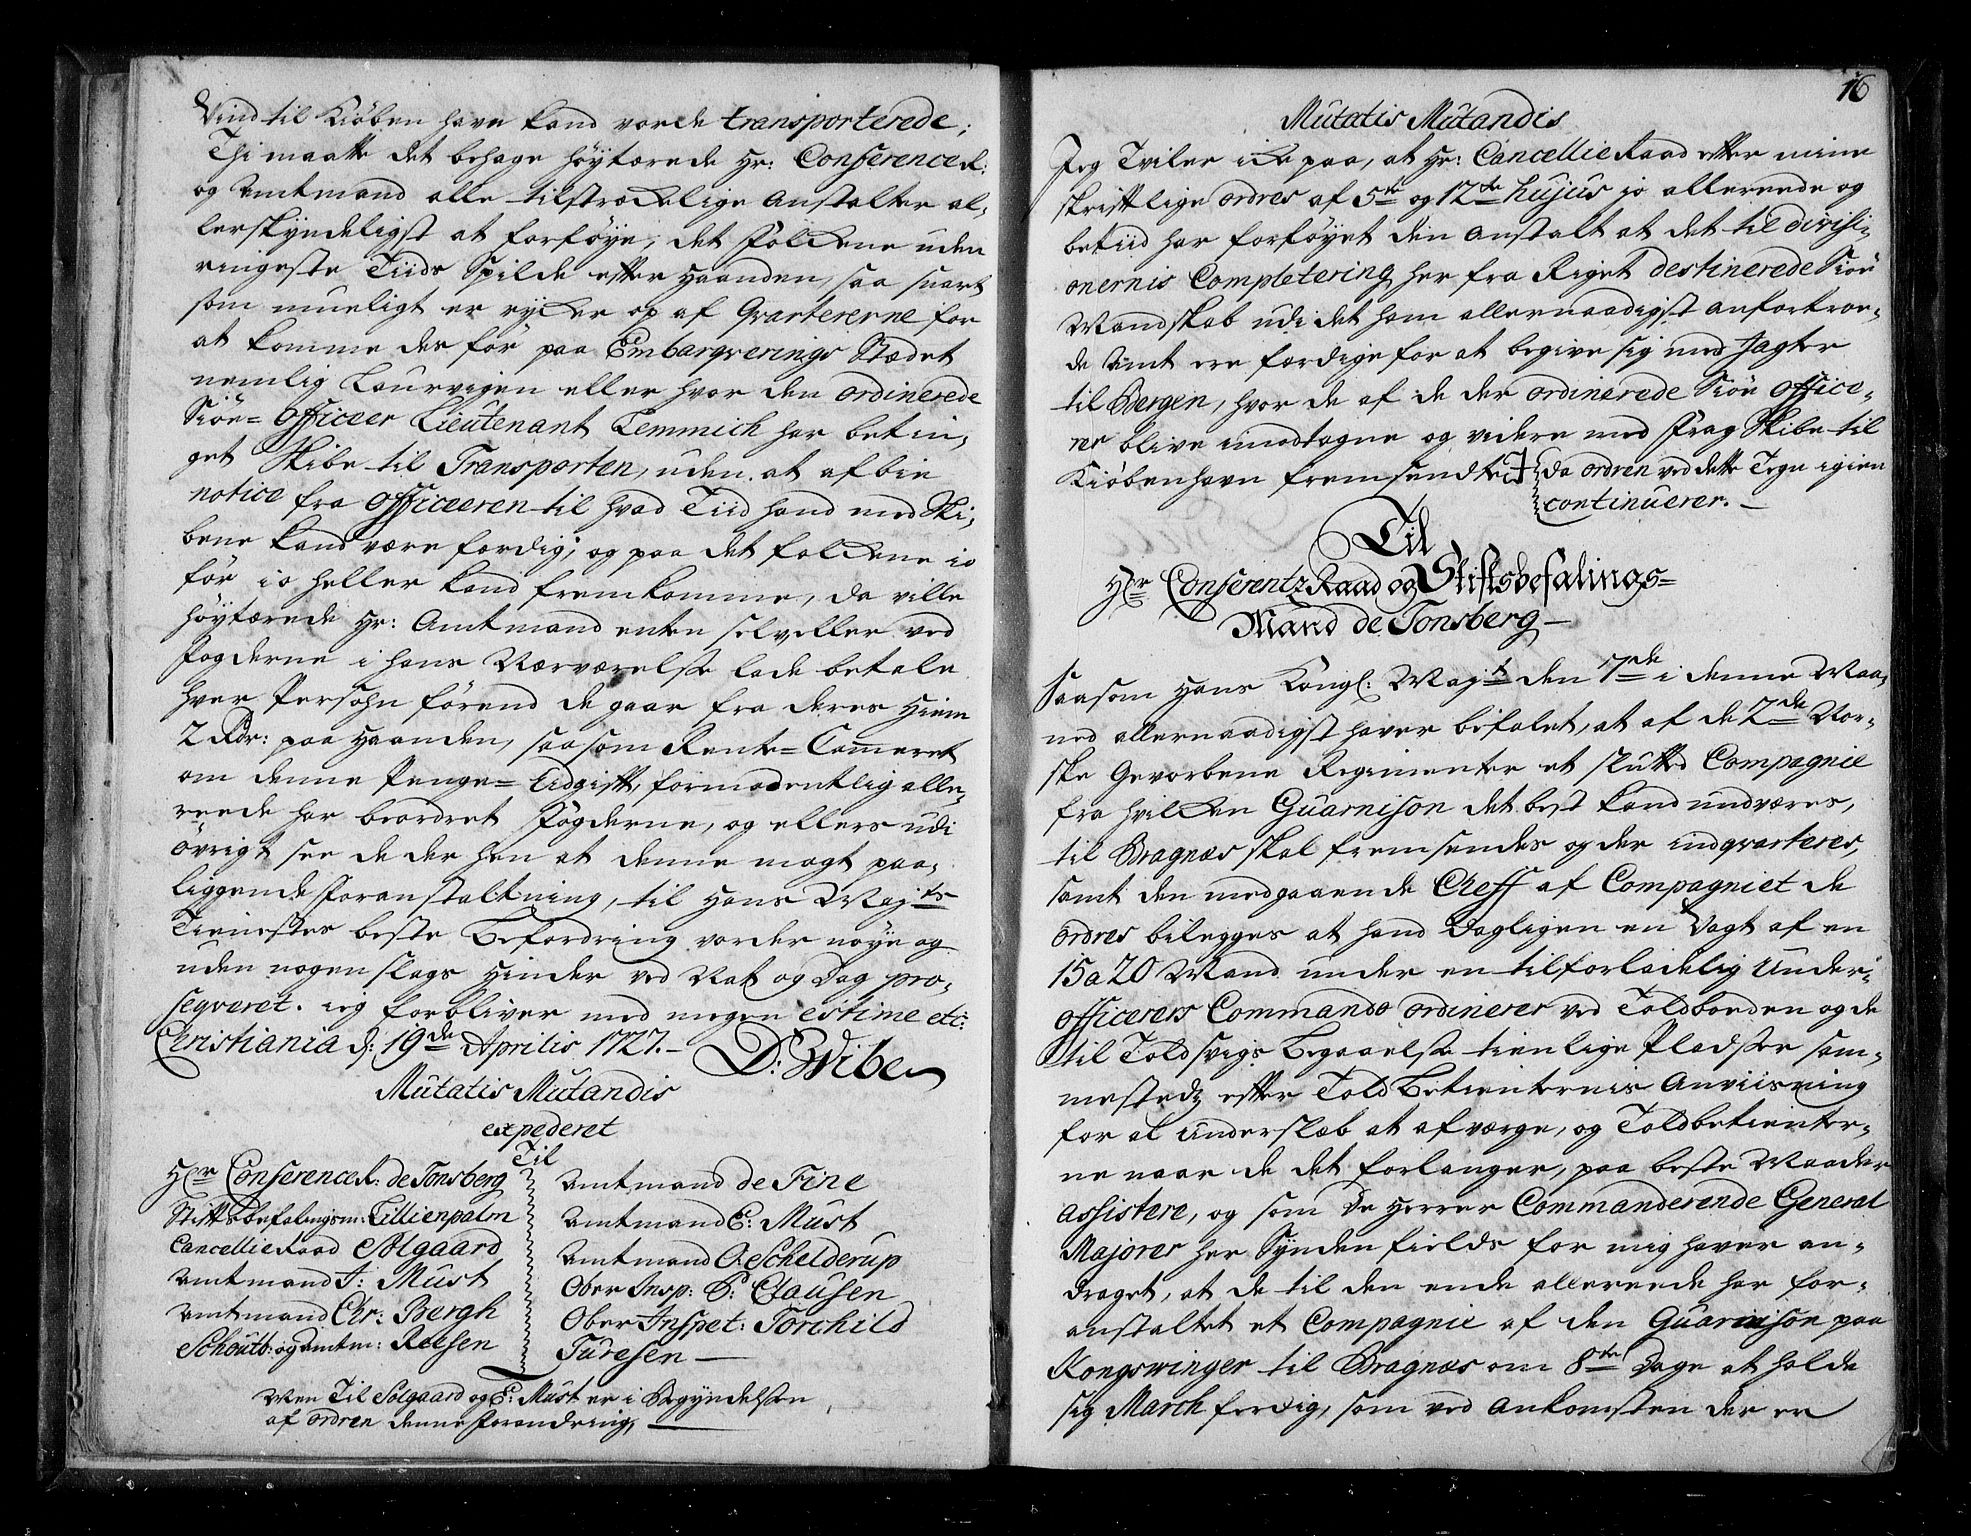 Vind til Kiöbenhavn kand vorde transporterede;
Thi maatte det behage höytærede Hr: ConferenceR:
og Amtmand alle tilstræckelige Anstalter al-
lerskyndeligst at forföye, det Folckene uden
ringeste Tiids Spilde efter Haanden, saa snart
som mueligt er rycker op af Qvartererne for
at komme der för paa Embarqverings Stædet
nemlig Laurvigen eller hvor den ordinerede
Siöe-Officeer Lieutenant Lemmich har betin-
get Skibe til Transporten, uden at afbie
notice fra Officeeren til hvad Tiid hand med Ski-
bene kand være færdig; og paa det Folckene jo
för jo heller kand fremkomme, da ville
höytærede Hr: Amtmand enten selv eller ved
Fogderne i hans Nærværelse lade betale
hver Persohn förend de gaar fra deres Hiem
2 Rdr: paa Haanden, saasom Rente-Cammeret
om denne Penge-Udgift, formodentlig alle-
reede har beordret Fogderne, og ellers udi
övrigt see de der hen at denne magt paa-
liggende Foranstaltning, til Hans Mayts
Tienestes beste Befordring vorder nöye og
uden nogen slags Hinder ved Nat og Dag pro-
seqveret. jeg forbliver med megen estime etc:
Christiania d: 19de Aprilis 1727.- D: Wibe
Mutatis Mutandis
expederet
Til
Hr Conference R: de Tonsberg
Stiftsbefalingsm: Lillienpalm
CancellieRaad Solgaard
Amtmand J: Must
Amtmand Chr: Bergh
Schoutb: og Amtm: Roesen
Amtmand de Fine
Amtmand E: Must
Amtmand O: Schelderup
Ober Insp: P: Clausen
Ober Inspet: Torchild
Turesen —
Men Til Solgaard og E: Must er i Begyndelsen
af ordren denne Forandring, —
16
Mutatis Mutandis
Jeg Tviler icke paa, at Hr: CancellieRaad efter mine
skriftlige ordres af 5te og 12te hujus jo allereede og
betiid har forföyet den Anstalt at det til divisi-
onernis Completering her fra Riget destinerede Siöe
Mandskab udi det ham allernaadigst anfortroe-
de Amt ere færdige for at begive sig med Jagter
til Bergen, hvor de af de der ordinerede Siöe Office-
rer blive imodtagne og videre med Fragt Skibe til
Kiöbenhavn fremsendte da ordren ved dette Tegn igien
continuerer. —
Til
Hr Conferentz Raad og Stiftsbefalings-
Mand de Tonsberg —
Saasom Hans Kongl: Mayt den 7de i denne Maa-
ned allernaadigst haver befalet, at af de 2de Nor-
ske Gevorbene Regimenter et sluttet Compagnie
fra hvilcken Guarnison det best kand undværes,
til Bragnæs skal fremsendes og der indqvarteres,
samt den medgaaende Cheff af Compagniet de
ordres bilegges at hand Dagligen en Vagt af en
15 a 20 Mand under en tilforladelig Under-
officerers Commando ordinerer ved Toldboeden og de
til Toldsvigs Begaaelse tienlige Pladser sam-
mesteds efter Told Betienternis Anviisning
for al Underslæb at afværge, og Toldbetienter-
ne naar de det forlanger, paa beste Maader
assistere, og som De Herrer Commanderende General
Majorer her Synden fields for mig haver an-
draget, at de til den ende allereede har for-
anstaltet et Compagnie af den Guarnison paa
Kongswinger til Bragnæs om 8te Dage at holde
sig March færdig, som ved Ankomsten der er